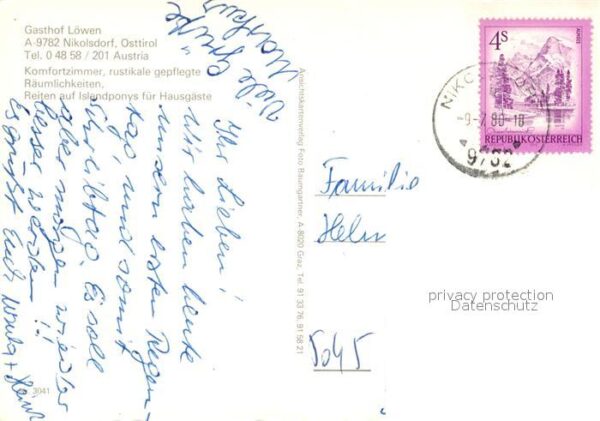 Gasthof Löwen
A-9782 Nikolsdorf, Osttirol
Tel. 0 48 58 / 201 Austria
Komfortzimmer, rustikale gepflegte
Räumlichkeiten,
Reiten auf Islandponys für Hausgäste
Ihr Lieben!
Wir haben heute
unseren ersten Regen-
tag, und somit
Schreibtag. Es soll
aber morgen wieder
besser werden!!
Es grüßt Euch, +
Viele Grüße
3041
Ansichtskartenverlag Foto Baumgartner, A-8020 Graz, Tel. 91 33 76, 91 58 21
Familie
5045
4S
REPUBLIK ÖSTERREICH
NIKO
-9.-7.80-18
9782
privacy protection
Datenschutz